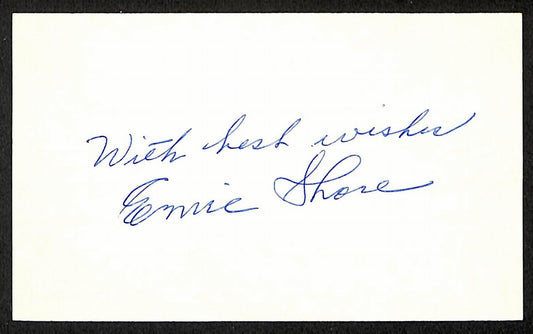 With best wishes
Ernie Shore